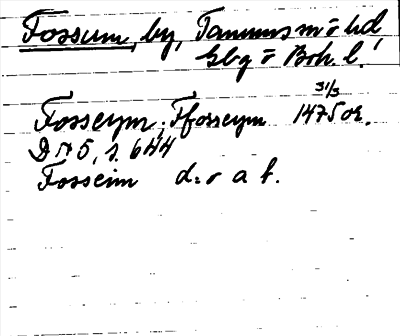 Fossum, by, Tanums sn o hd,
Gbg o Boh. l.
31/3
Fosseym; Ffosseym 1475 or.
DN 5, s. 644
Fosseim d:o a f.